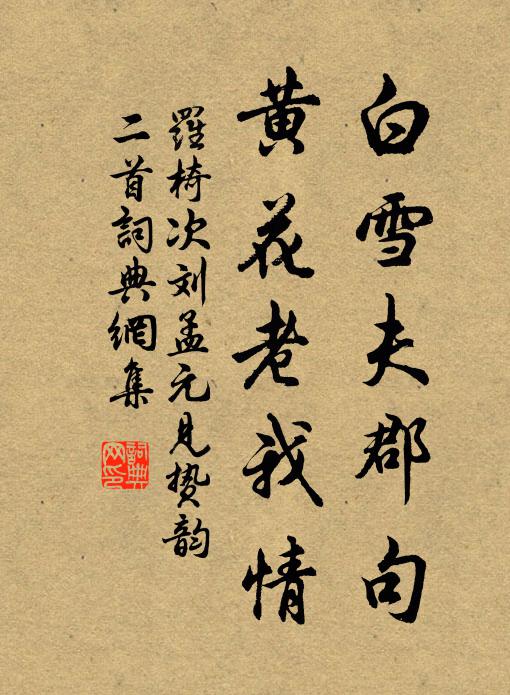 白雪夫郡句
黄花老我情
羅椅次刘孟元見贽韵
二首詞典網集
詞典網印